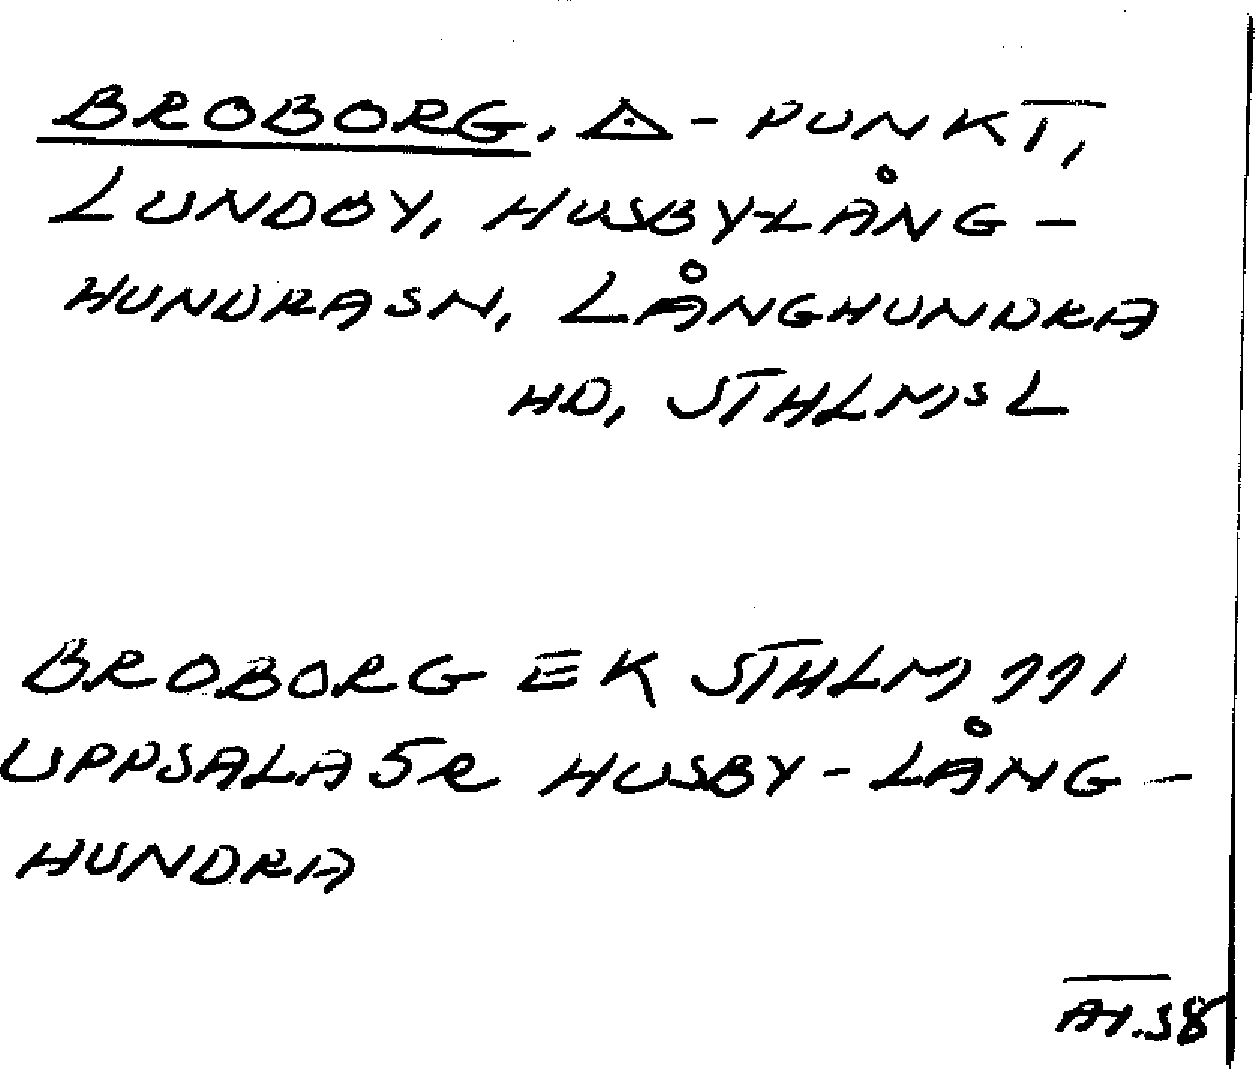 BROBORG, △-PUNKT,
LUNDBY, HUSBY-LÅNG-
HUNDRA SN, LÅNGHUNDRA
HD, STHLMS L
BROBORG EK STHLM 111
UPPSALA 52 HUSBY-LÅNG-
HUNDRA